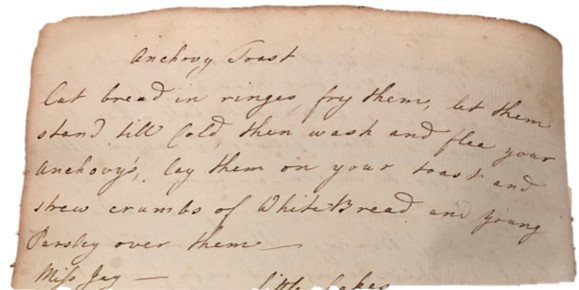 Anchovy Toast
Cut bread in ringes, fry them, let them
stand till Cold, then wash and flee your
Anchovy's, lay them on your toast and
strew crumbs of White-Bread and young
Parsley over them —
Miss Jay —
little Cakes